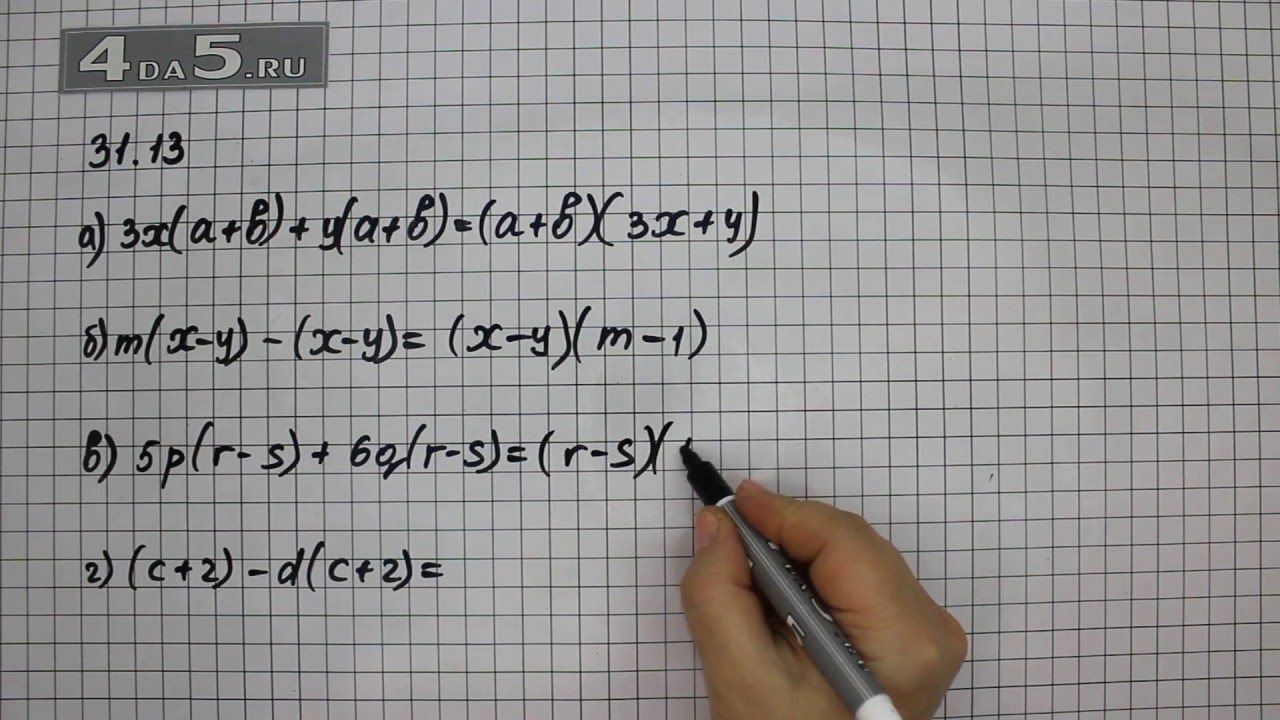 4DA5.RU
31.13
а) 3x(a+b)+y(a+b)=(a+b)(3x+y)
б) m(x-y)-(x-y)=(x-y)(m-1)
в) 5p(r-s)+6q(r-s)=(r-s)(
г) (c+2)-d(c+2)=